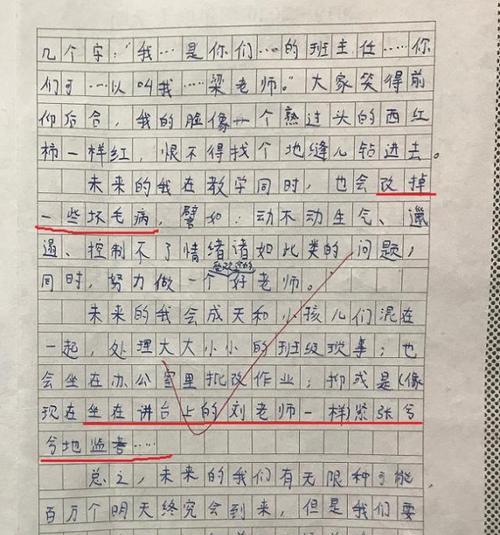 几个字："我…是你们…的班主任……你
们可…以叫我…梁老师。"大家笑得前
仰后合，我的脸像一个熟过头的西红
柿一样红，恨不得找个地缝儿钻进去。
未来的我在教学同时，也会改掉
一些坏毛病，譬如：动不动生气、邋
遢、控制不了情绪诸如此类的问题，
同时，努力做一个好老师。
未来的我会成天和小孩儿们混在
一起，处理大大小小的班级琐事；也
会坐在办公室里批改作业；抑或是（像
现在坐在讲台上的刘老师一样）紧张兮
兮地监考……
总之，未来的我们有无限种可能，
百万个明天终究会到来，但是我们要